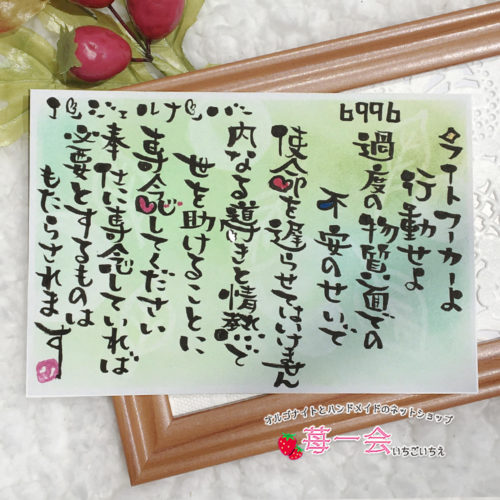 エンジェルナンバー
6996
ライトワーカーよ
行動せよ
過度の物質面での
不安のせいで
使命を遅らせてはいけません
内なる導きと情熱で
世を助けることに
専念してください
奉仕に専念していれば
必要とするものは
もたらされます
オルゴナイトとハンドメイドのネットショップ
苺一会
いちごいちえ